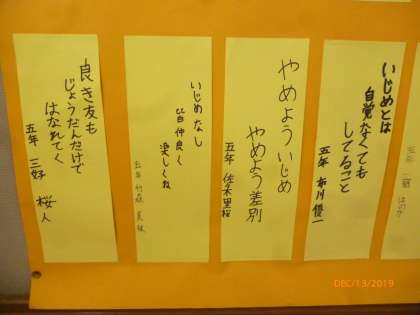 いじめとは
自覚なくても
してること
五年 市川 優一
やめよういじめ
やめよう差別
五年 佐々木里桜
いじめなし
皆仲良く
楽しくね
五年
良き友も
じょうだんだけで
はなれてく
五年 三好 桜人
DEC/13/2019